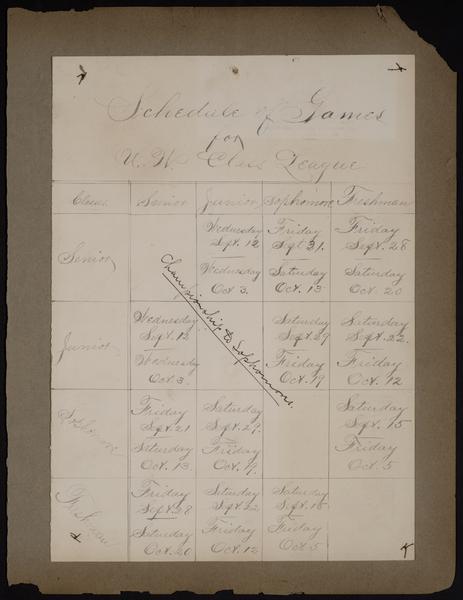 Schedule of Games
for
U. W. Class League
Classes. Senior Junior Sophomore Freshman
Senior Wednesday Sept. 12 Friday Sept 21. Friday Sept. 28
Wednesday Oct 3. Saturday Oct. 13 Saturday Oct. 20
Junior Wednesday Sept. 12 Saturday Sept. 29 Saturday Sept. 22.
Wednesday Oct 3. Friday Oct. 19 Friday Oct. 12
Sophomore Friday Sept. 21 Saturday Sept. 29. Saturday Sept. 15
Saturday Oct. 13 Friday Oct. 19. Friday Oct. 5
Freshman Friday Sept. 28 Saturday Sept. 22 Saturday Sept. 15
Saturday Oct. 20 Friday Oct. 12 Friday Oct 5
Championship to Sophomore.